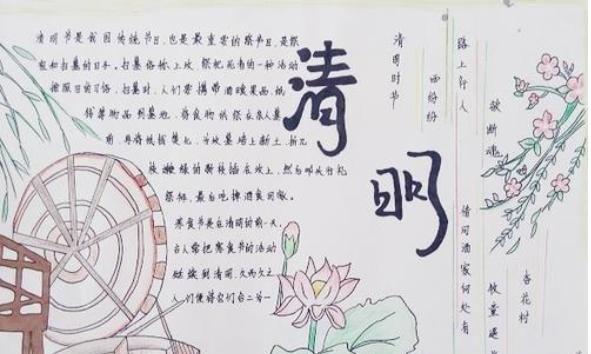 清明节是我国传统节日,也是最重要的祭节日,是祭
祖和扫墓的日子。扫墓俗称上坟,祭祀死者的一种活动
按照旧的习俗,扫墓时,人们要携带酒馔果品,纸
钱等物品到墓地,将食物供祭在亲人墓
前,再将纸钱焚化,为坟墓培上新土,折几
枝嫩绿的新枝插在坟上,然后叩头行礼
祭拜,最后吃掉酒食回家。
寒食节是在清明的前一天,
古人常把寒食节的活动
延续到清明,久而久之
人们便将它们合二为一
清明
清明时节
雨纷纷
路上行人
欲断魂
借问酒家何处有
牧童遥
杏花村